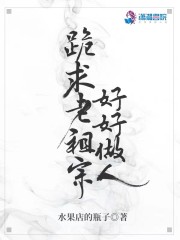 潇湘书院
跪求老祖宗
好好做人
水果店的瓶子◎著